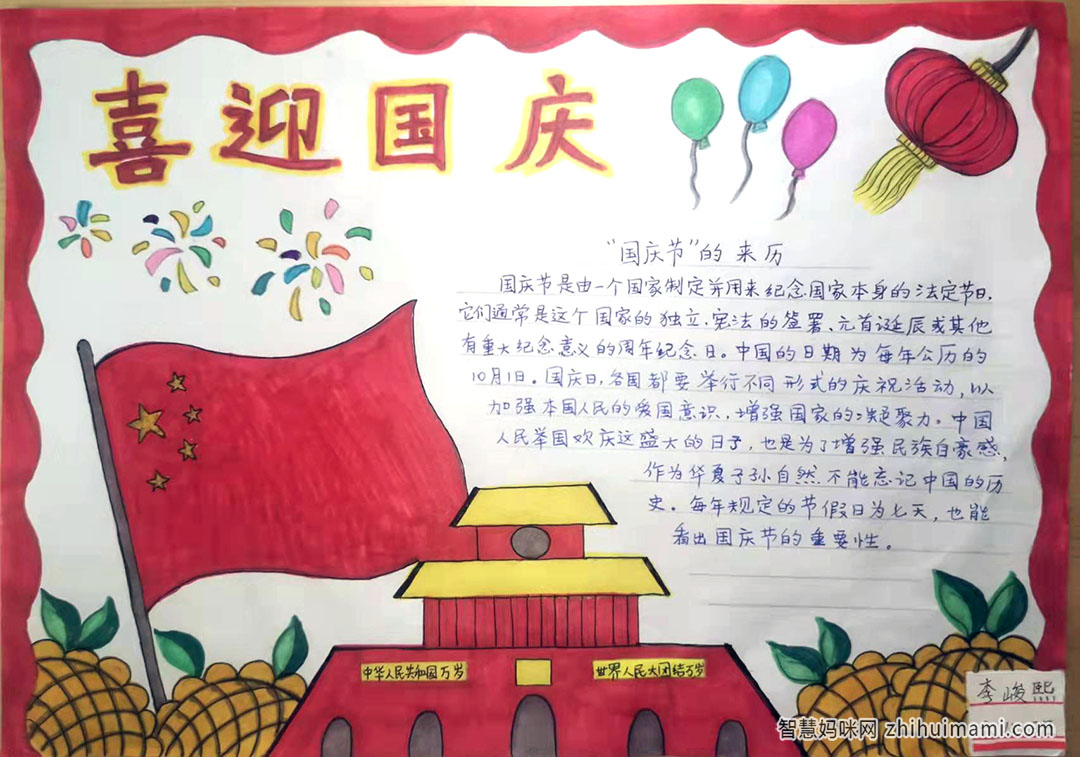 喜迎国庆
“国庆节”的来历
国庆节是由一个国家制定并用来纪念国家本身的法定节日,
它们通常是这个国家的独立、宪法的签署、元首诞辰或其他
有重大纪念意义的周年纪念日。中国的日期为每年公历的
10月1日。国庆日,各国都要举行不同形式的庆祝活动,以
加强本国人民的爱国意识,增强国家的凝聚力。中国
人民举国欢庆这盛大的日子,也是为了增强民族自豪感,
作为华夏子孙自然不能忘记中国的历
史。每年规定的节假日为七天,也能
看出国庆节的重要性。
中华人民共和国万岁
世界人民大团结万岁
李峻熙
智慧妈咪网 zhihuimami.com